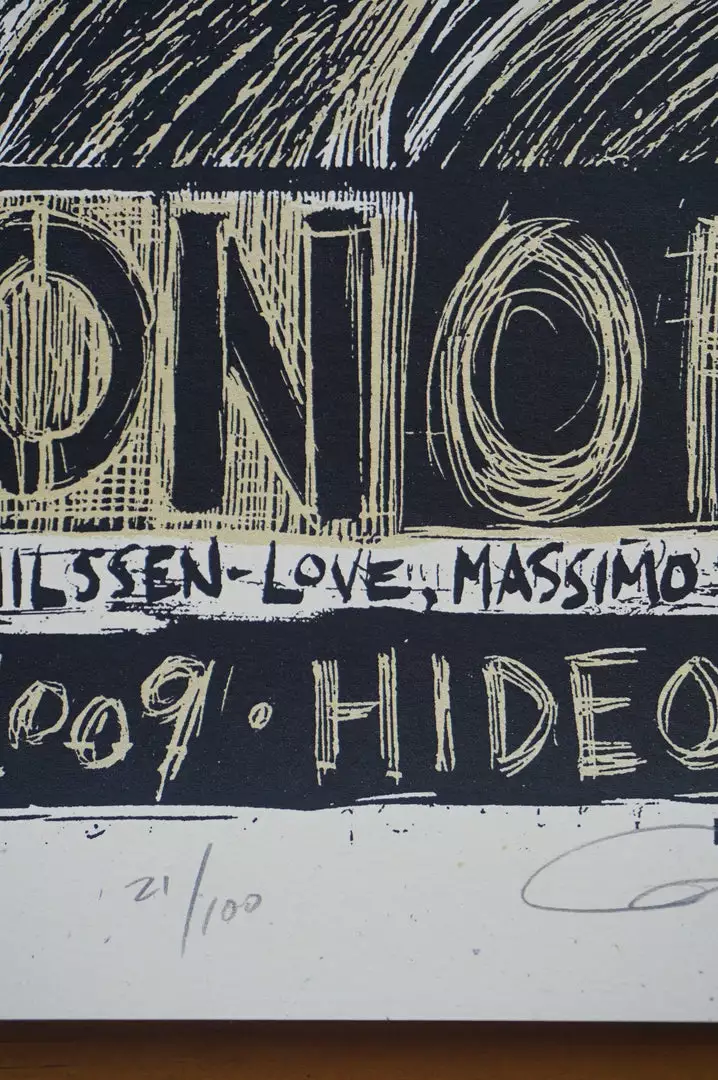 ONO
NILSSEN-LOVE, MASSIMO
2009 · HIDEO
21/100